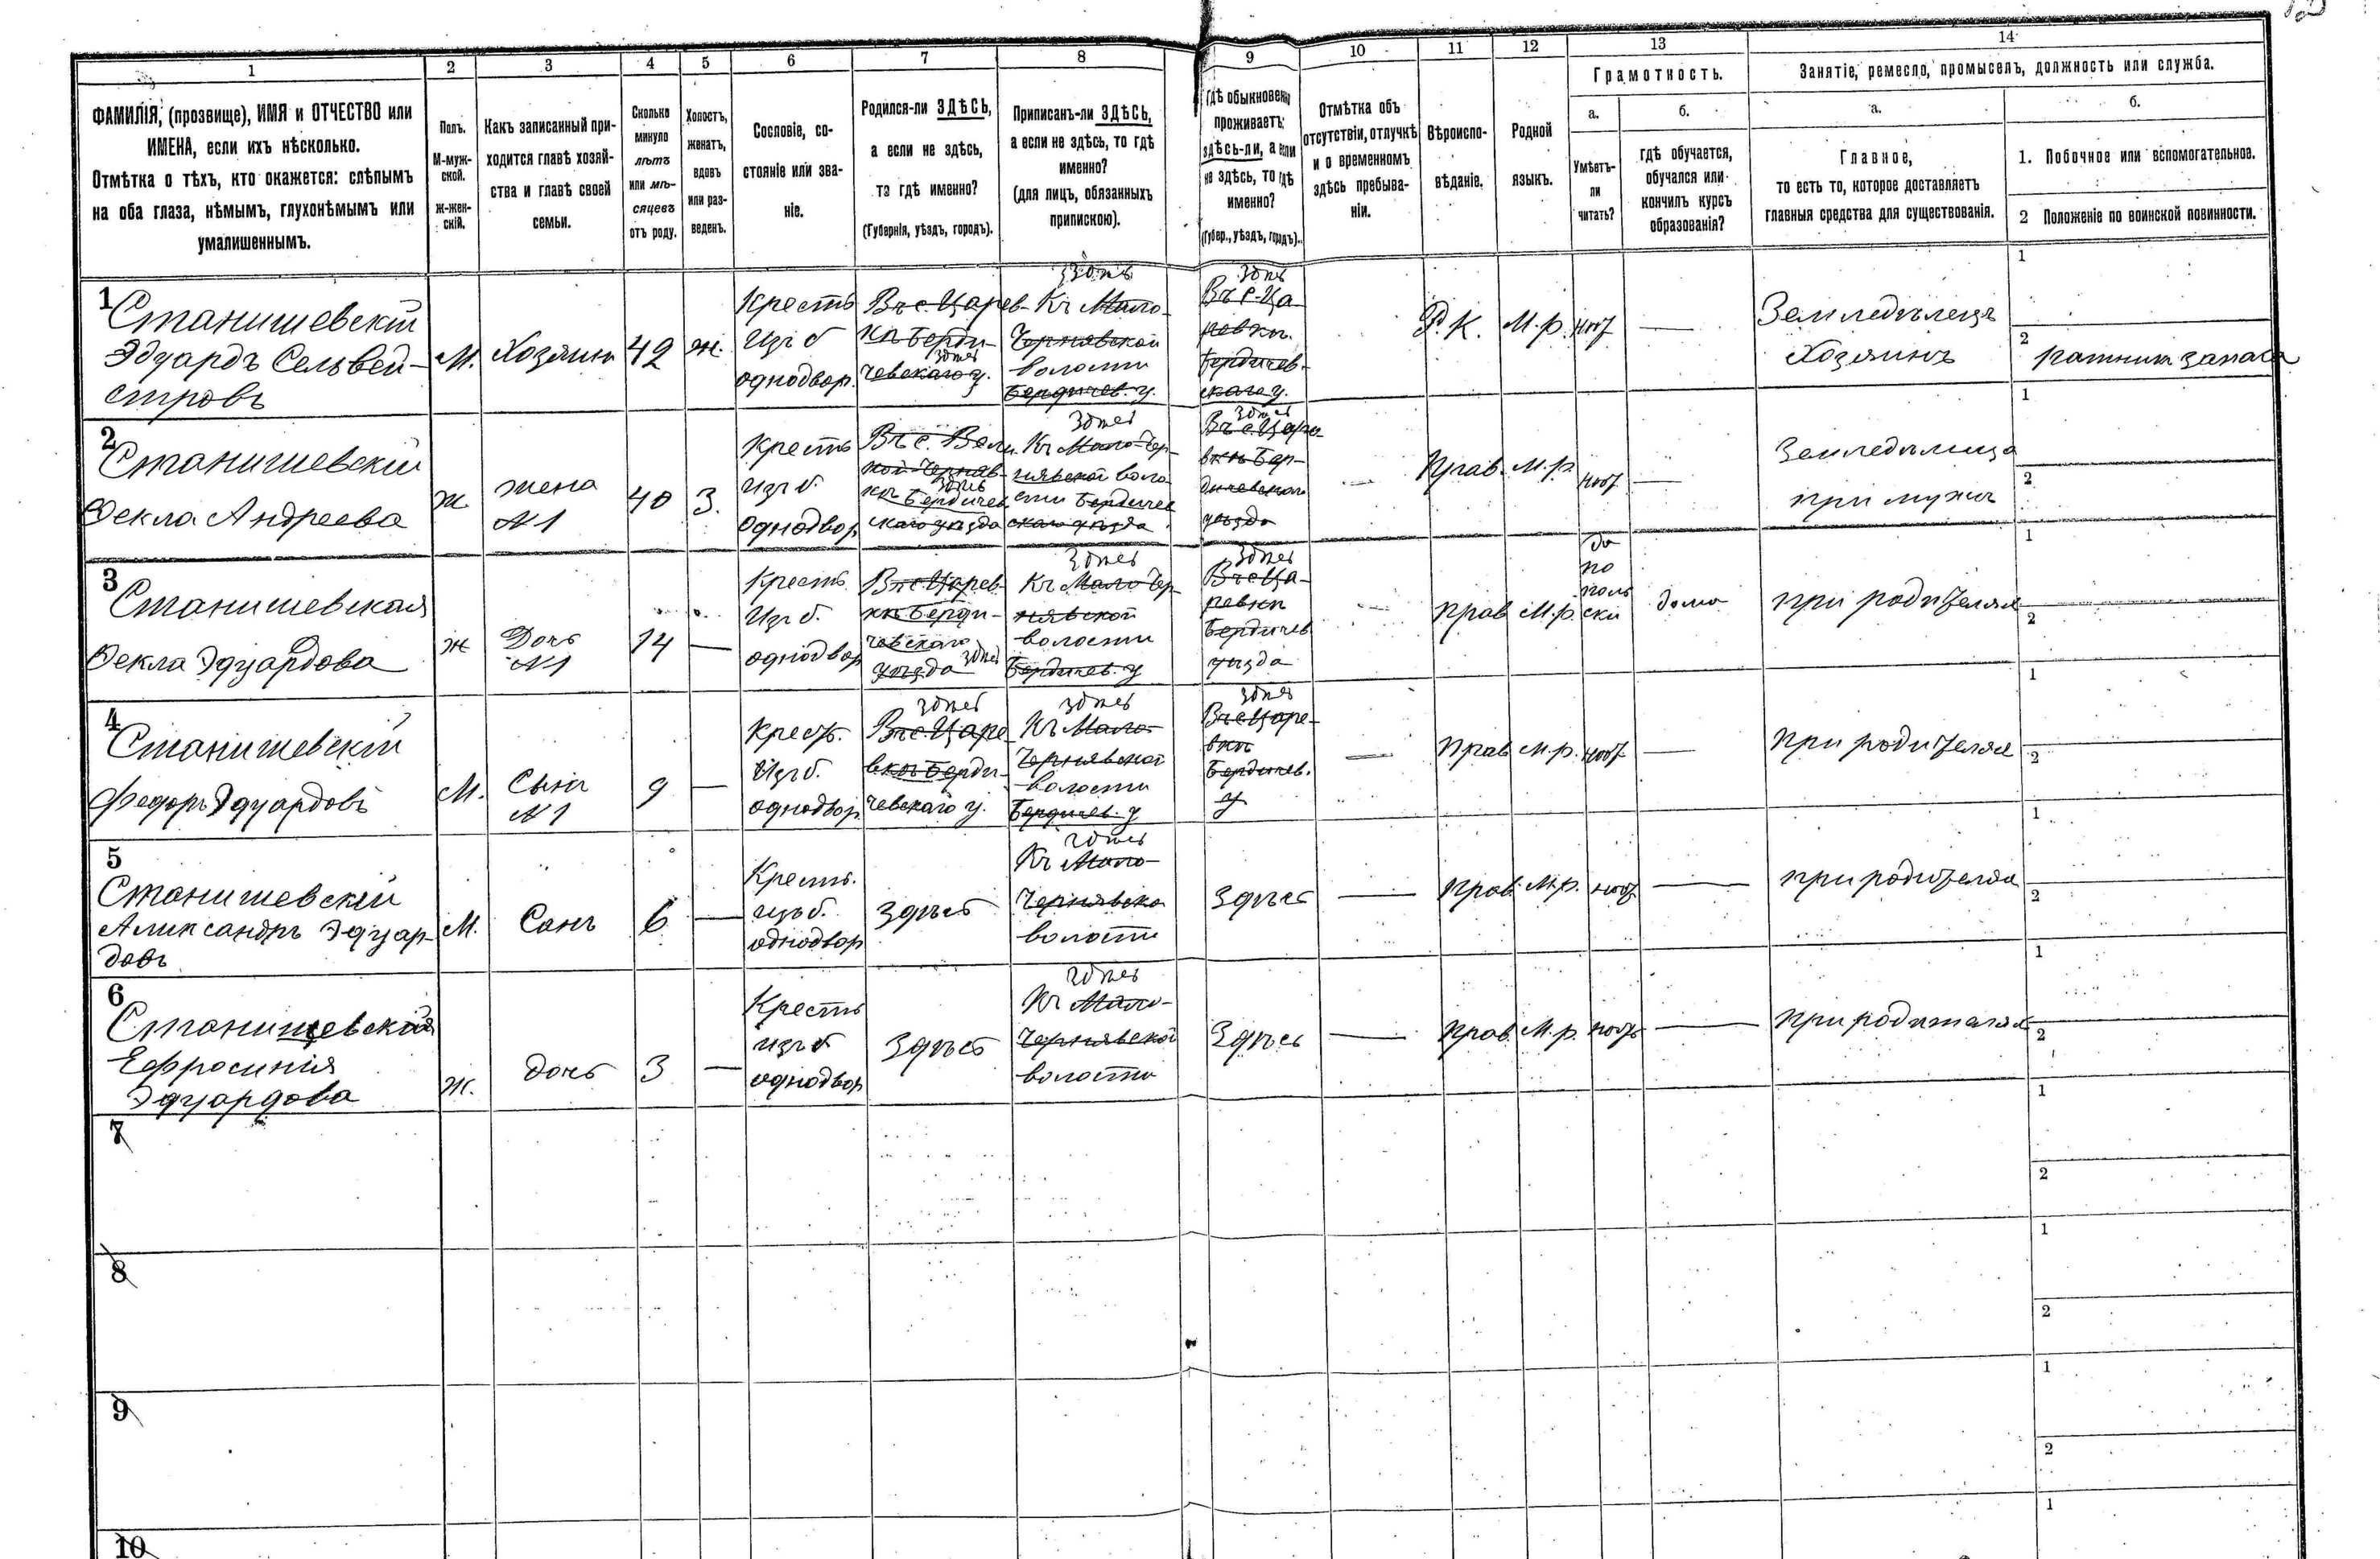 1 2 3 4 5 6 7 8 9 10 11 12 13 14
ФАМИЛІЯ, (прозвище), ИМЯ и ОТЧЕСТВО или
ИМЕНА, если ихъ нѣсколько.
Отмѣтка о тѣхъ, кто окажется: слѣпымъ
на оба глаза, нѣмымъ, глухонѣмымъ или
умалишеннымъ.
Полъ.
М-муж-
ской.
ж-жен-
скій.
Какъ записанный при-
ходится главѣ хозяй-
ства и главѣ своей
семьи.
Сколько
минуло
лѣтъ
или мѣ-
сяцевъ
отъ роду.
Холостъ,
женатъ,
вдовъ
или раз-
веденъ.
Сословіе, со-
стояніе или зва-
ніе.
Родился-ли ЗДѢСЬ,
а если не здѣсь,
то гдѣ именно?
(Губернія, уѣздъ, городъ).
Приписанъ-ли ЗДѢСЬ,
а если не здѣсь, то гдѣ
именно?
(для лицъ, обязанныхъ
припискою).
Гдѣ обыкновенно
проживаетъ:
здѣсь-ли, а если
не здѣсь, то гдѣ
именно?
(Губер., уѣздъ, городъ).
Отмѣтка объ
отсутствіи, отлучкѣ
и о временномъ
здѣсь пребыва-
ніи.
Вѣроиспо-
вѣданіе.
Родной
языкъ.
Грамотность.
а.
Умѣетъ-
ли
читать?
б.
гдѣ обучается,
обучался или
кончилъ курсъ
образованія?
Занятіе, ремесло, промыселъ, должность или служба.
а.
Главное,
то есть то, которое доставляетъ
главныя средства для существованія.
б.
1. Побочное или вспомогательное.
2 Положеніе по воинской повинности.
1
Станишевскій
Эдуардъ Сельвей-
стровъ
М.
Хозяинъ
42
ж.
Кресть
Изъ б
однодвор.
Въ с. Царев-
кѣ Берди-
здѣсь
чевскаго у.
здѣсь
Къ Мало-
Чернявской
волости
Бердичев. у.
здѣсь
Въ с. Ца-
ревкѣ
Бердичев-
скаго у.
Р. К.
М. р.
нѣт
—
Земледѣлецъ
Хозяинъ
1
2
ратник запаса
2
Станишевскій
Векла Андреева
ж
жена
№ 1
40
З.
Кресть
изъ б.
однодвор
Въ с. Вели
кой Черняв-
здѣсь
кѣ Бердичев
скаго уѣзда
здѣсь
Къ Мало-Чер-
нявской воло-
сти Бердичев
скаго уѣзда
здѣсь
Въ с. Царе-
вкѣ Бер-
дичевскаго
уѣзда
—
Прав.
М. р.
нѣт
—
Земледѣлица
при мужѣ
1
2
3
Станишевская
Векла Эдуардова
ж
Дочь
№ 1
14
—
Кресть
Изъ б.
однодвор
Въ с. Царев-
кѣ Берди-
чевскаго
уѣзда здѣсь
здѣсь
Къ Мало Чер-
нявской
волости
Бердичев. у
здѣсь
Въ с Ца-
ревкѣ
Бердичев
уѣзда
—
прав
М. р.
да
по
поль
ски
дома
при родителях
1
2
4
Станишевскій
Федоръ Эдуардовъ
М.
Сынъ
№ 1
9
—
Крест.
Изъ б.
однодвор
здѣсь
Въ с. Царе
вкѣ Берди-
чевскаго у.
здѣсь
Къ Мало-
Чернявской
волости
Бердичев. у
здѣсь
Въ с Царе-
вкѣ
Бердичев.
у
—
прав
М. р.
нѣт
—
при родителях
1
2
5
Станишевскій
Александръ Эдуар-
довъ
М.
Сынъ
6
—
Кресть.
изъ б.
однодвор
Здѣсь
здѣсь
Къ Мало-
Чернявско
волости
Здѣсь
—
прав.
М. р.
нѣт
—
при родителях
1
2
6
Станишевская
Ефросинія
Эдуардова
ж.
дочь
3
—
Кресть
изъ б
однодвор
Здѣсь
здѣсь
Къ Мало-
Чернявской
волости
Здѣсь
—
прав.
М. р.
нѣт
—
при родителях
1
2
7
1
2
8
1
2
9
1
2
10
1